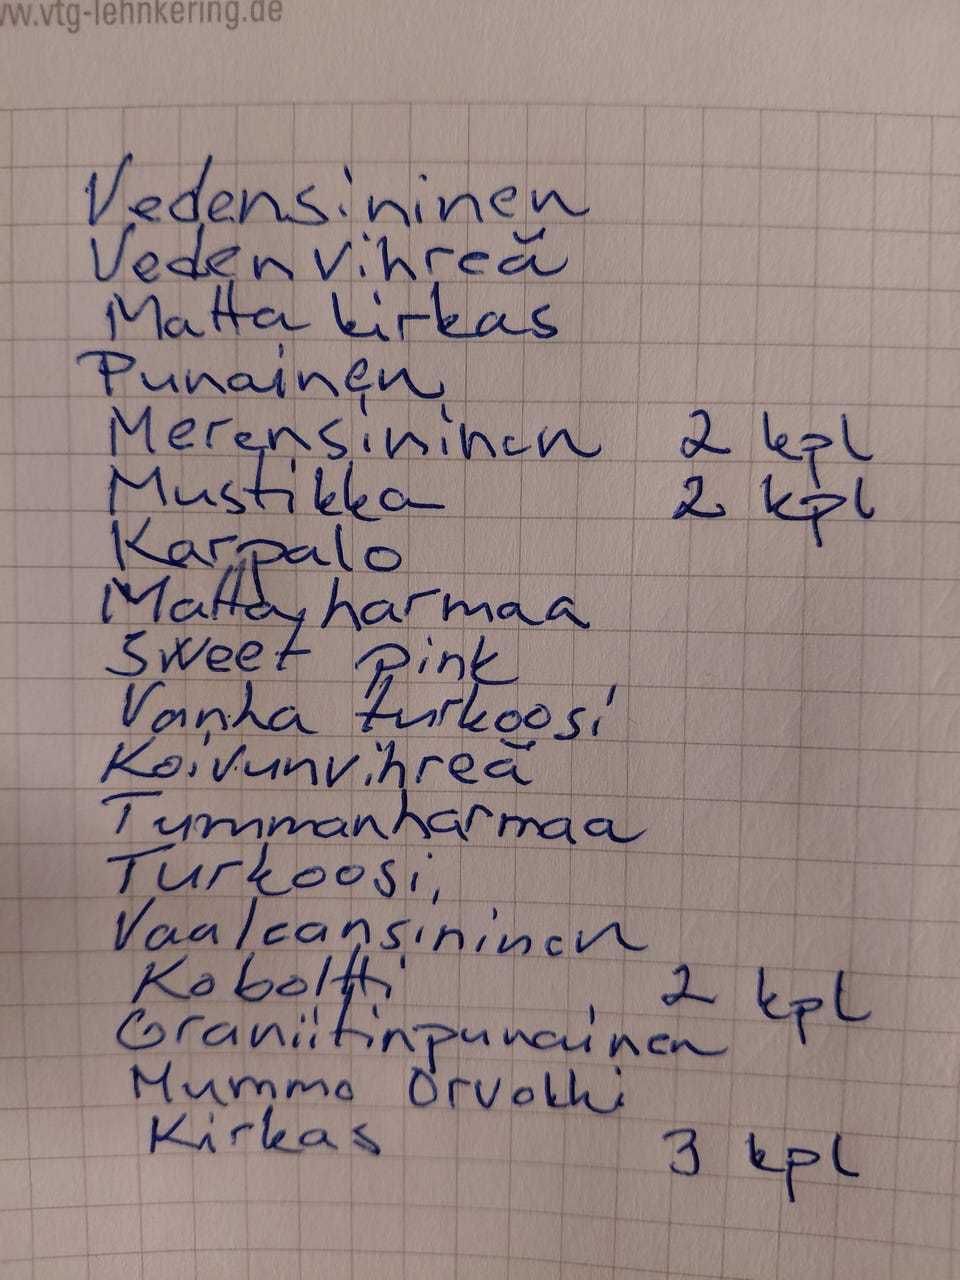 ww.vtg-lehnkering.de
Vedensininen
Vedenvihreä
Matta kirkas
Punainen
Merensininen 2 kpl
Mustikka 2 kpl
Karpalo
Matta harmaa
Sweet pink
Vanha turkoosi
Koivunvihreä
Tummanharmaa
Turkoosi,
Vaaleansininen
Koboltti 2 kpl
Graniitinpunainen
Mummo Orvokki
Kirkas 3 kpl